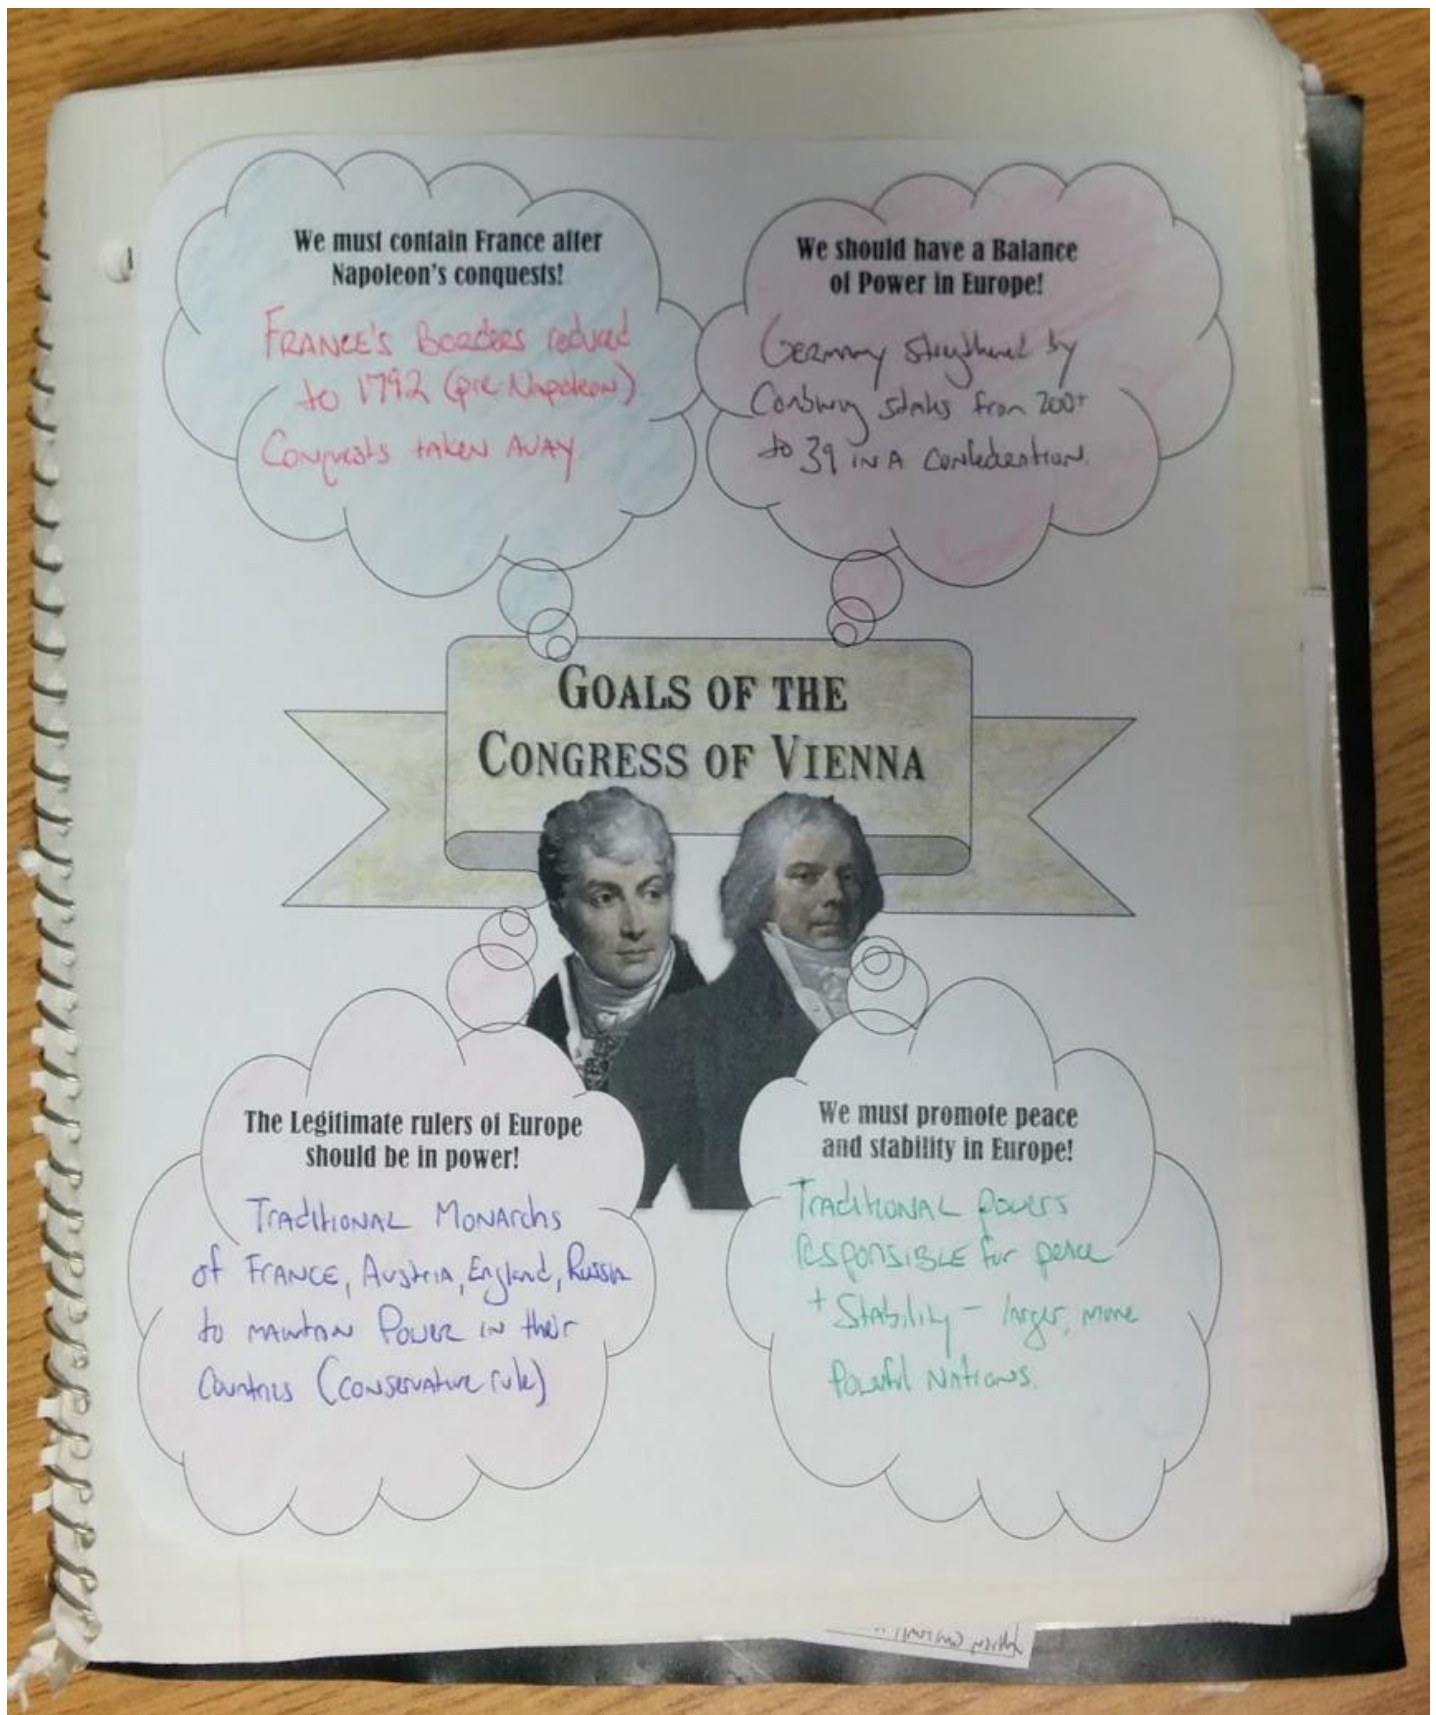 We must contain France after
Napoleon's conquests!
FRANCE'S BORDERS reduced
to 1792 (pre-Napoleon)
Conquests taken AWAY
We should have a Balance
of Power in Europe!
GERMANY strengthened by
Combining states from 200+
to 39 IN A Confederation.
GOALS OF THE
CONGRESS OF VIENNA
The Legitimate rulers of Europe
should be in power!
TRADITIONAL MONARchs
of FRANCE, AUSTRIA, England, Russia
to MAINTAIN POWER IN their
Countries (conservative rule)
We must promote peace
and stability in Europe!
TRADITIONAL powers
RESPONSIBLE for peace
+ Stability - larger, more
Powerful NATIONS.